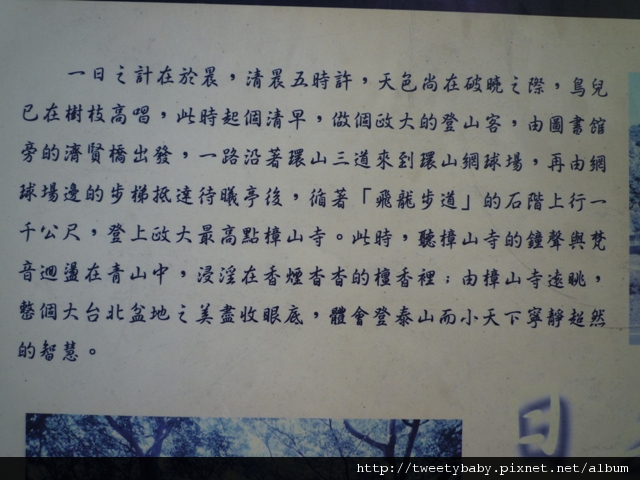 一日之計在於晨，清晨五時許，天色尚在破曉之際，鳥兒
已在樹枝高唱，此時起個清早，做個政大的登山客，由圖書館
旁的濟賢橋出發，一路沿著環山三道來到環山網球場，再由網
球場邊的步梯抵達待曦亭後，循著「飛龍步道」的石階上行一
千公尺，登上政大最高點樟山寺。此時，聽樟山寺的鐘聲與梵
音迴盪在青山中，浸淫在香煙杳杳的檀香裡；由樟山寺遠眺，
整個大台北盆地之美盡收眼底，體會登泰山而小天下寧靜超然
的智慧。
http://tweetybaby.pixnet.net/album